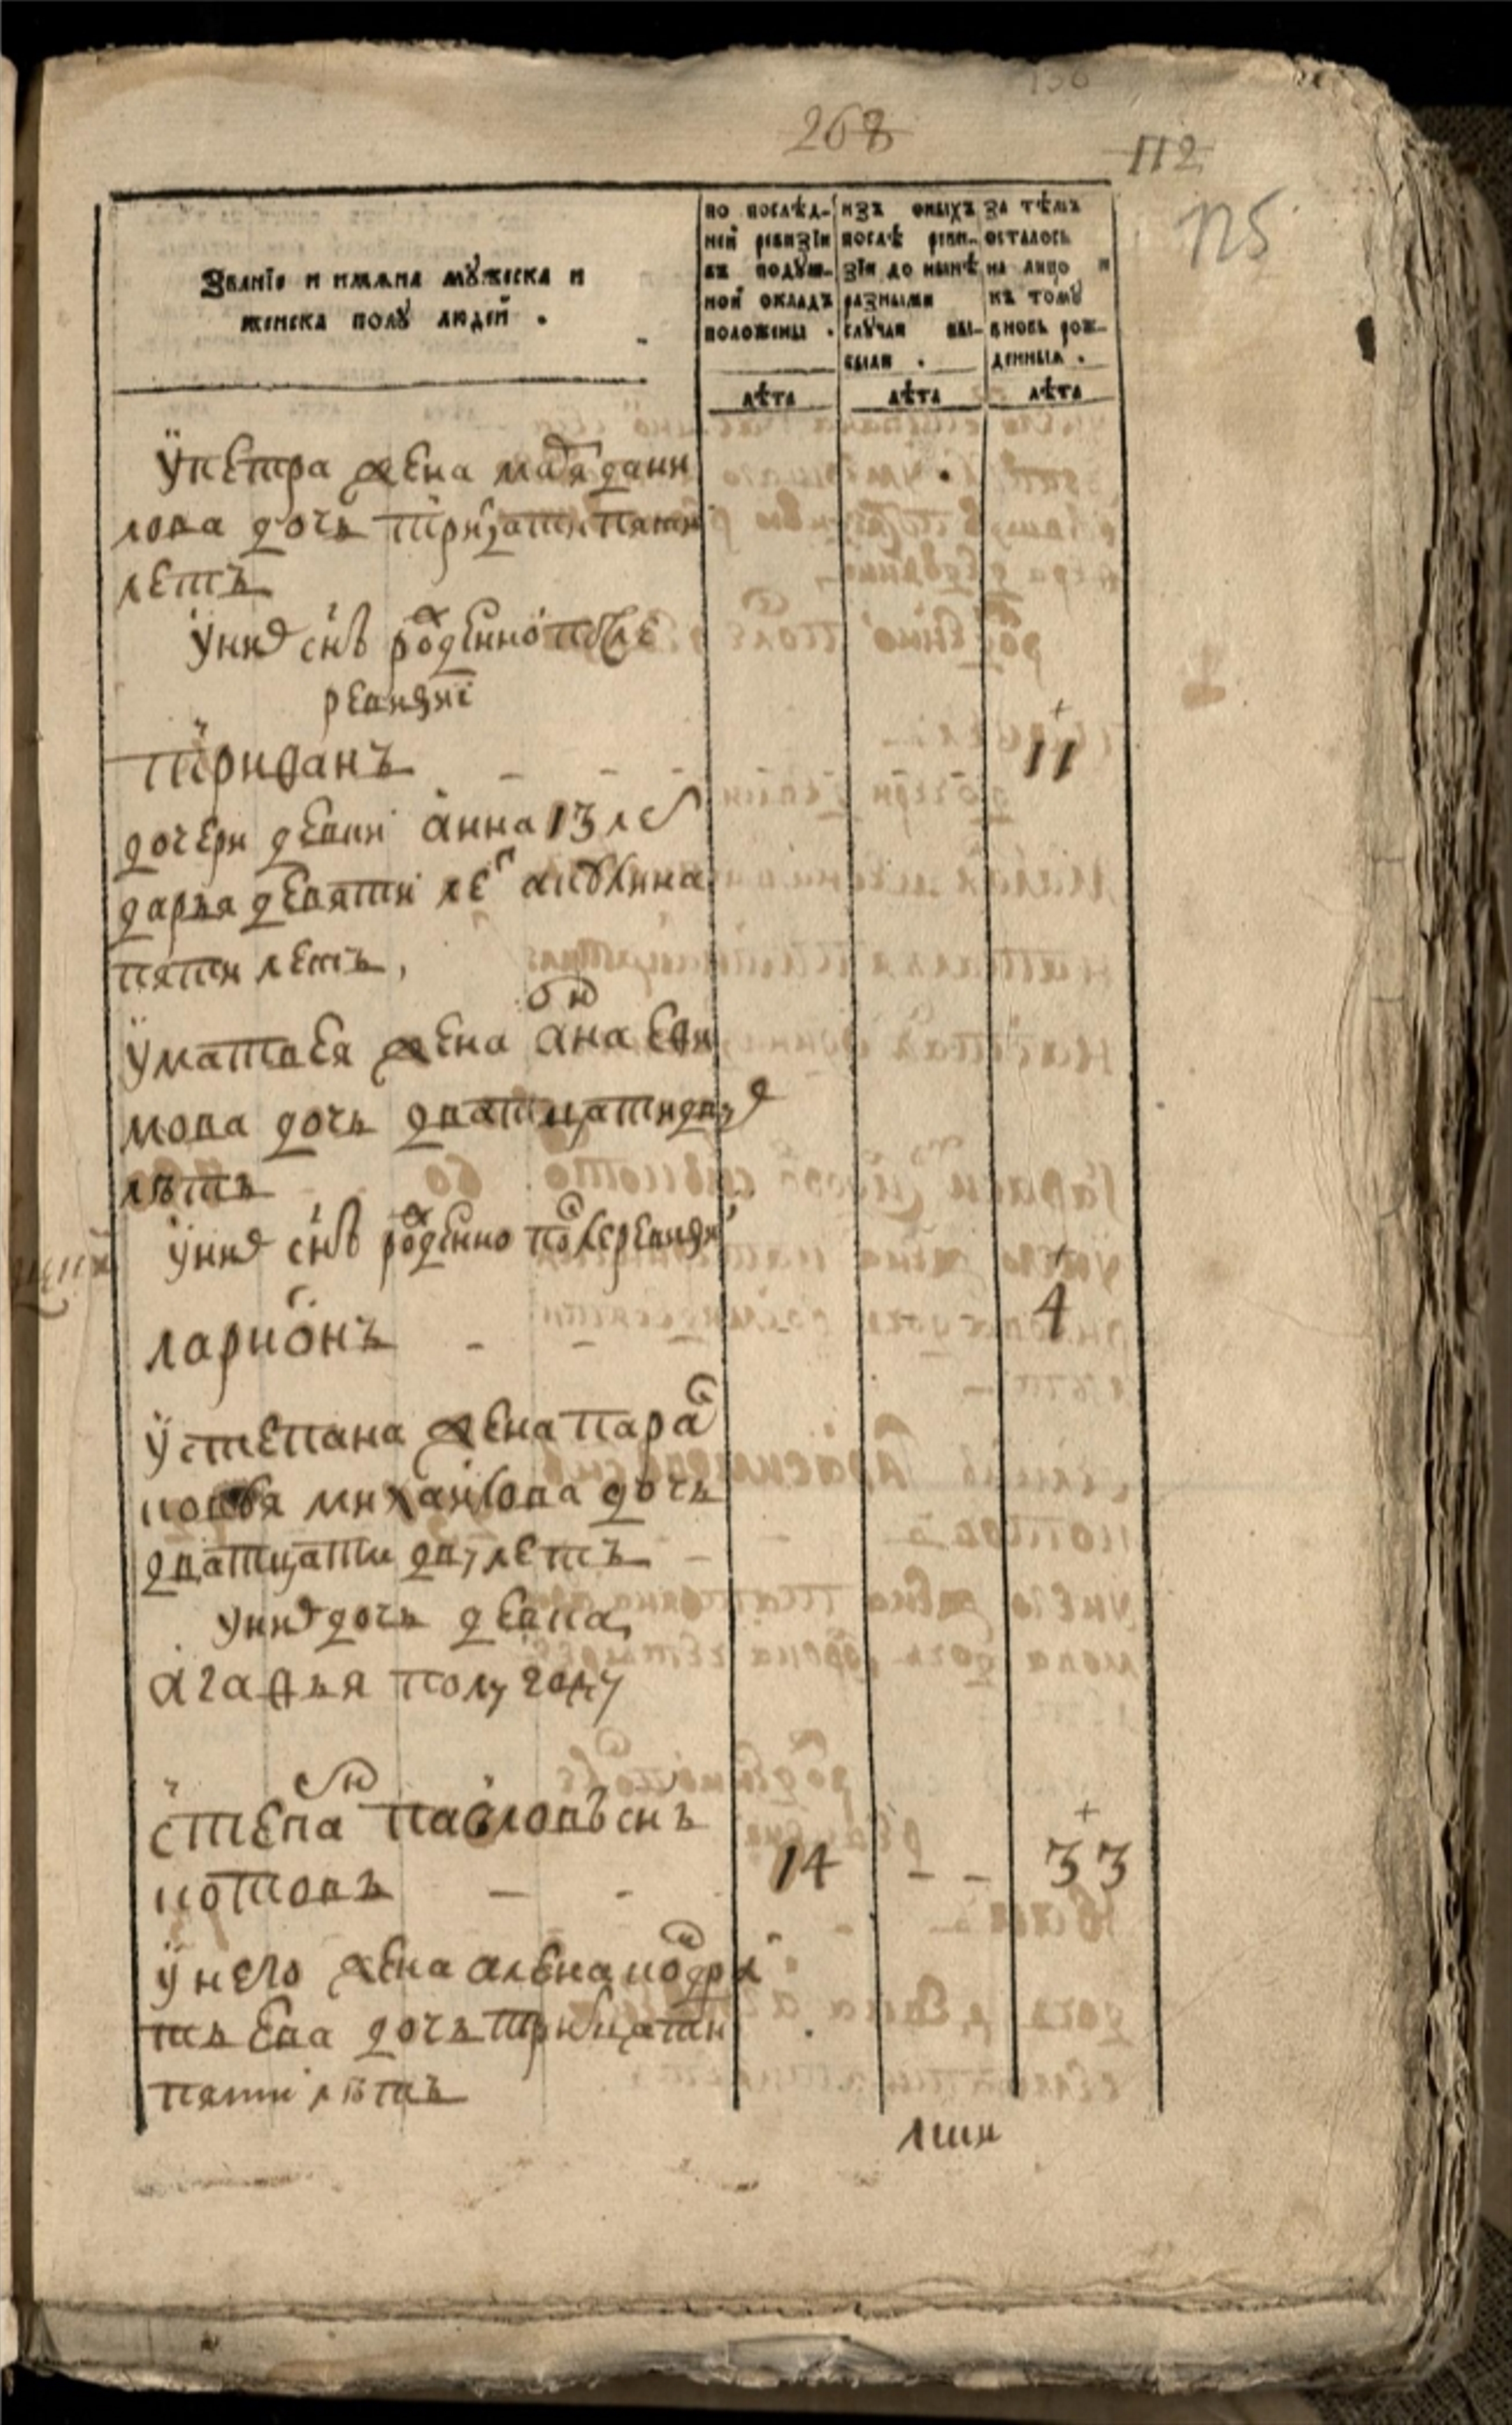 268
112
125
Званїе и имяна мужеска и
женска полу людей .
по послѣд-
ней ревизіи
въ подуш-
ной окладъ
положены .
изъ оныхъ
послѣ реви-
зіи до нынѣ
разными
случаи вы-
были .
за тѣмъ
осталось
на лицо и
къ тому
вновь рож-
денныя .
лѣта
лѣта
лѣта
упетра жена мавя дани
лова дочь тритцатипяти
летъ
уних снъ рожденно после
ревизиї
тририанъ - - - 11
дочери девки анна 13 ле
дарья девяти ле акулина
пяти летъ,
уматвея жена анна ефи
мова дочь дватцатидву
лѣтъ
уних снъ рожденно послеревизи
ларионъ - - - 4
устепана жена пара
ковья михаилова дочь
дватцати дву летъ
уних дочь девка
агафья полугоду
степанъ павловъ снъ
котовъ - - 14 - - 33
унего жена алена кондра
тьева дочь тритцати
пяти лѣтъ